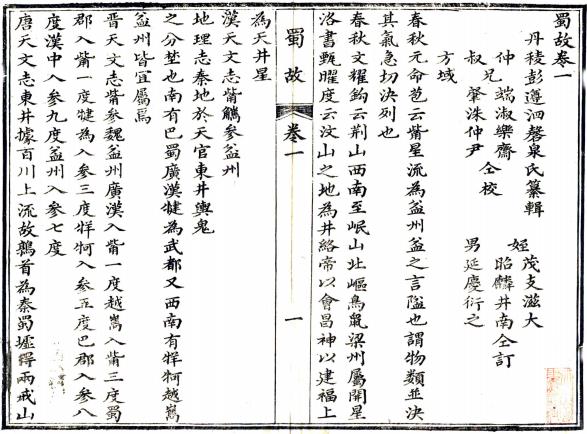 蜀故卷一
丹稜彭遵泗磬泉氏纂輯
仲兄端淑樂齋 姪茂支滋大
叔兄肇洙仲尹仝校 昭麟井南仝訂
男延慶衍之
方域
春秋元命苞云觜星流為益州益之言隘也謂物類並決
其氣急切決列也
春秋文耀鉤云荊山西南至岷山北嶇鳥鼠梁州屬開星
洛書甄曜度云汶山之地為井絡帝以會昌神以建福上
蜀故 卷一 一
為天井星
漢天文志觜觿參益州
地理志秦地於天官東井輿鬼
之分埜也南有巴蜀廣漢犍為武都又西南有牂牁越嶲
益州皆宜屬焉
晉天文志觜參魏益州廣漢入觜一度越嶲入觜三度蜀
郡入觜一度犍為入參三度牂牁入參五度巴郡入參八
度漢中入參九度益州入參七度
唐天文志東井據百川上流故鶉首為秦蜀墟得兩戒山